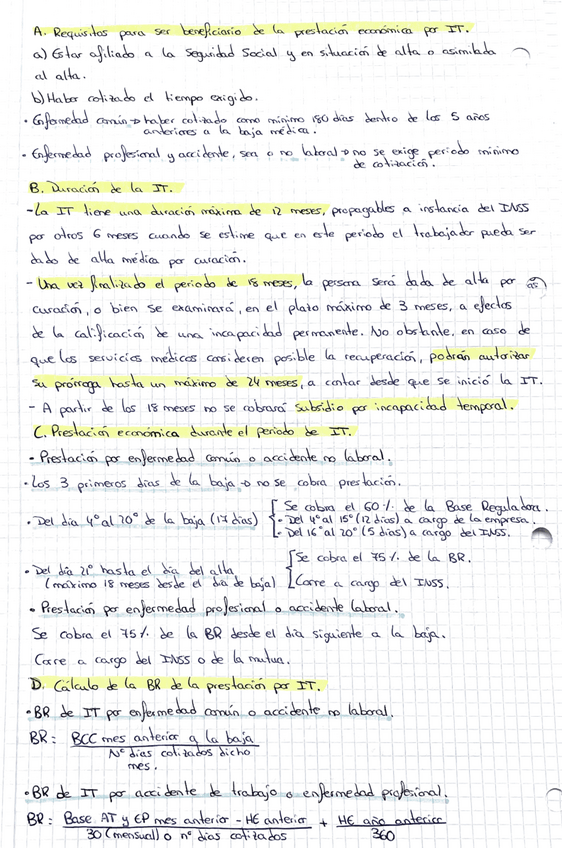 A. Requisitos para ser beneficiario de la prestación económica por IT.
a) Estar afiliado a la Seguridad Social y en situación de alta o asimilada
al alta.
b) Haber cotizado el tiempo exigido.
· Enfermedad común → haber cotizado como mínimo 180 días dentro de los 5 años
anteriores a la baja médica.
· Enfermedad profesional y accidente, sea o no laboral → no se exige periodo mínimo
de cotización.
B. Duración de la IT.
- La IT tiene una duración máxima de 12 meses, propagables a instancia del INSS
por otros 6 meses cuando se estime que en este periodo el trabajador pueda ser
dado de alta médica por curación.
- Una vez finalizado el periodo de 18 meses, la persona será dada de alta por
curación, o bien se examinará, en el plazo máximo de 3 meses, a efectos
de la calificación de una incapacidad permanente. No obstante, en caso de
que los servicios médicos consideren posible la recuperación, podrán autorizar
su prórroga hasta un máximo de 24 meses, a contar desde que se inició la IT.
- A partir de los 18 meses no se cobrará subsidio por incapacidad temporal.
C. Prestación económica durante el periodo de IT.
- Prestación por enfermedad común o accidente no laboral.
· Los 3 primeros días de la baja → no se cobra prestación.
· Del día 4º al 20º de la baja (17 días)
Se cobra el 60% de la Base Reguladora.
· Del 4º al 15º (12 días) a cargo de la empresa.
· Del 16º al 20º (5 días) a cargo del INSS.
· Del día 21º hasta el día del alta
(máximo 18 meses desde el día de baja)
Se cobra el 75% de la BR.
Corre a cargo del INSS.
· Prestación por enfermedad profesional o accidente laboral.
Se cobra el 75% de la BR desde el día siguiente a la baja.
Corre a cargo del INSS o de la mutua.
D. Cálculo de la BR de la prestación por IT.
· BR de IT por enfermedad común o accidente no laboral.
BR: BCC mes anterior a la baja
Nº días cotizados dicho
mes.
· BR de IT por accidente de trabajo o enfermedad profesional.
BR: Base AT y EP mes anterior - HE anterior + HE año anterior
30 (mensual) o nº días cotizados 360